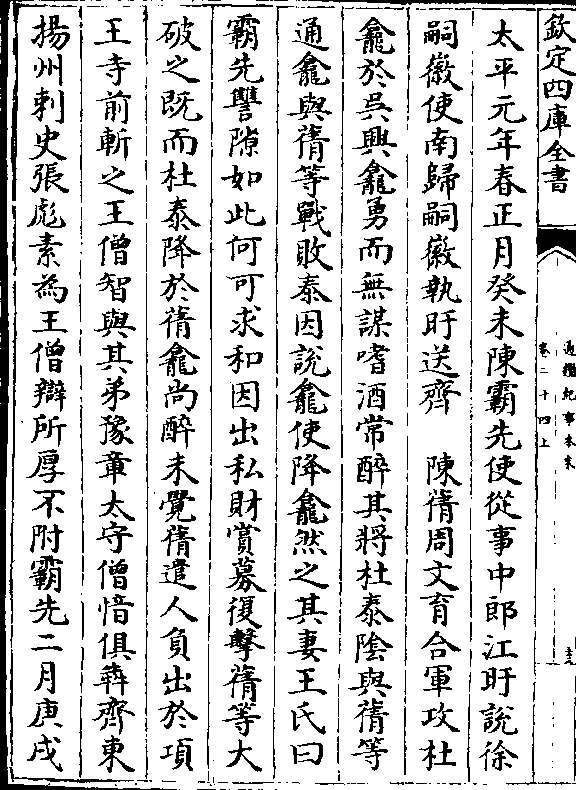 欽定四庫全書
通鑑紀事本末
卷二十四上
太平元年春正月癸未陳霸先使從事中郎江旰説徐
嗣徽使南歸嗣徽執旰送齊　陳蒨周文育合軍攻杜
龕於吳興龕勇而無謀嗜酒常醉其將杜泰隂與蒨等
通龕與蒨等戰敗泰因説龕使降龕然之其妻王氏曰
霸先讐隙如此何可求和因出私財賞募復擊蒨等大
破之既而杜泰降於蒨龕尚醉未覺蒨遣人負出於項
王寺前斬之王僧智與其弟豫章太守僧愔俱犇齊東
揚州刺史張彪素為王僧辯所厚不附霸先二月庚戌